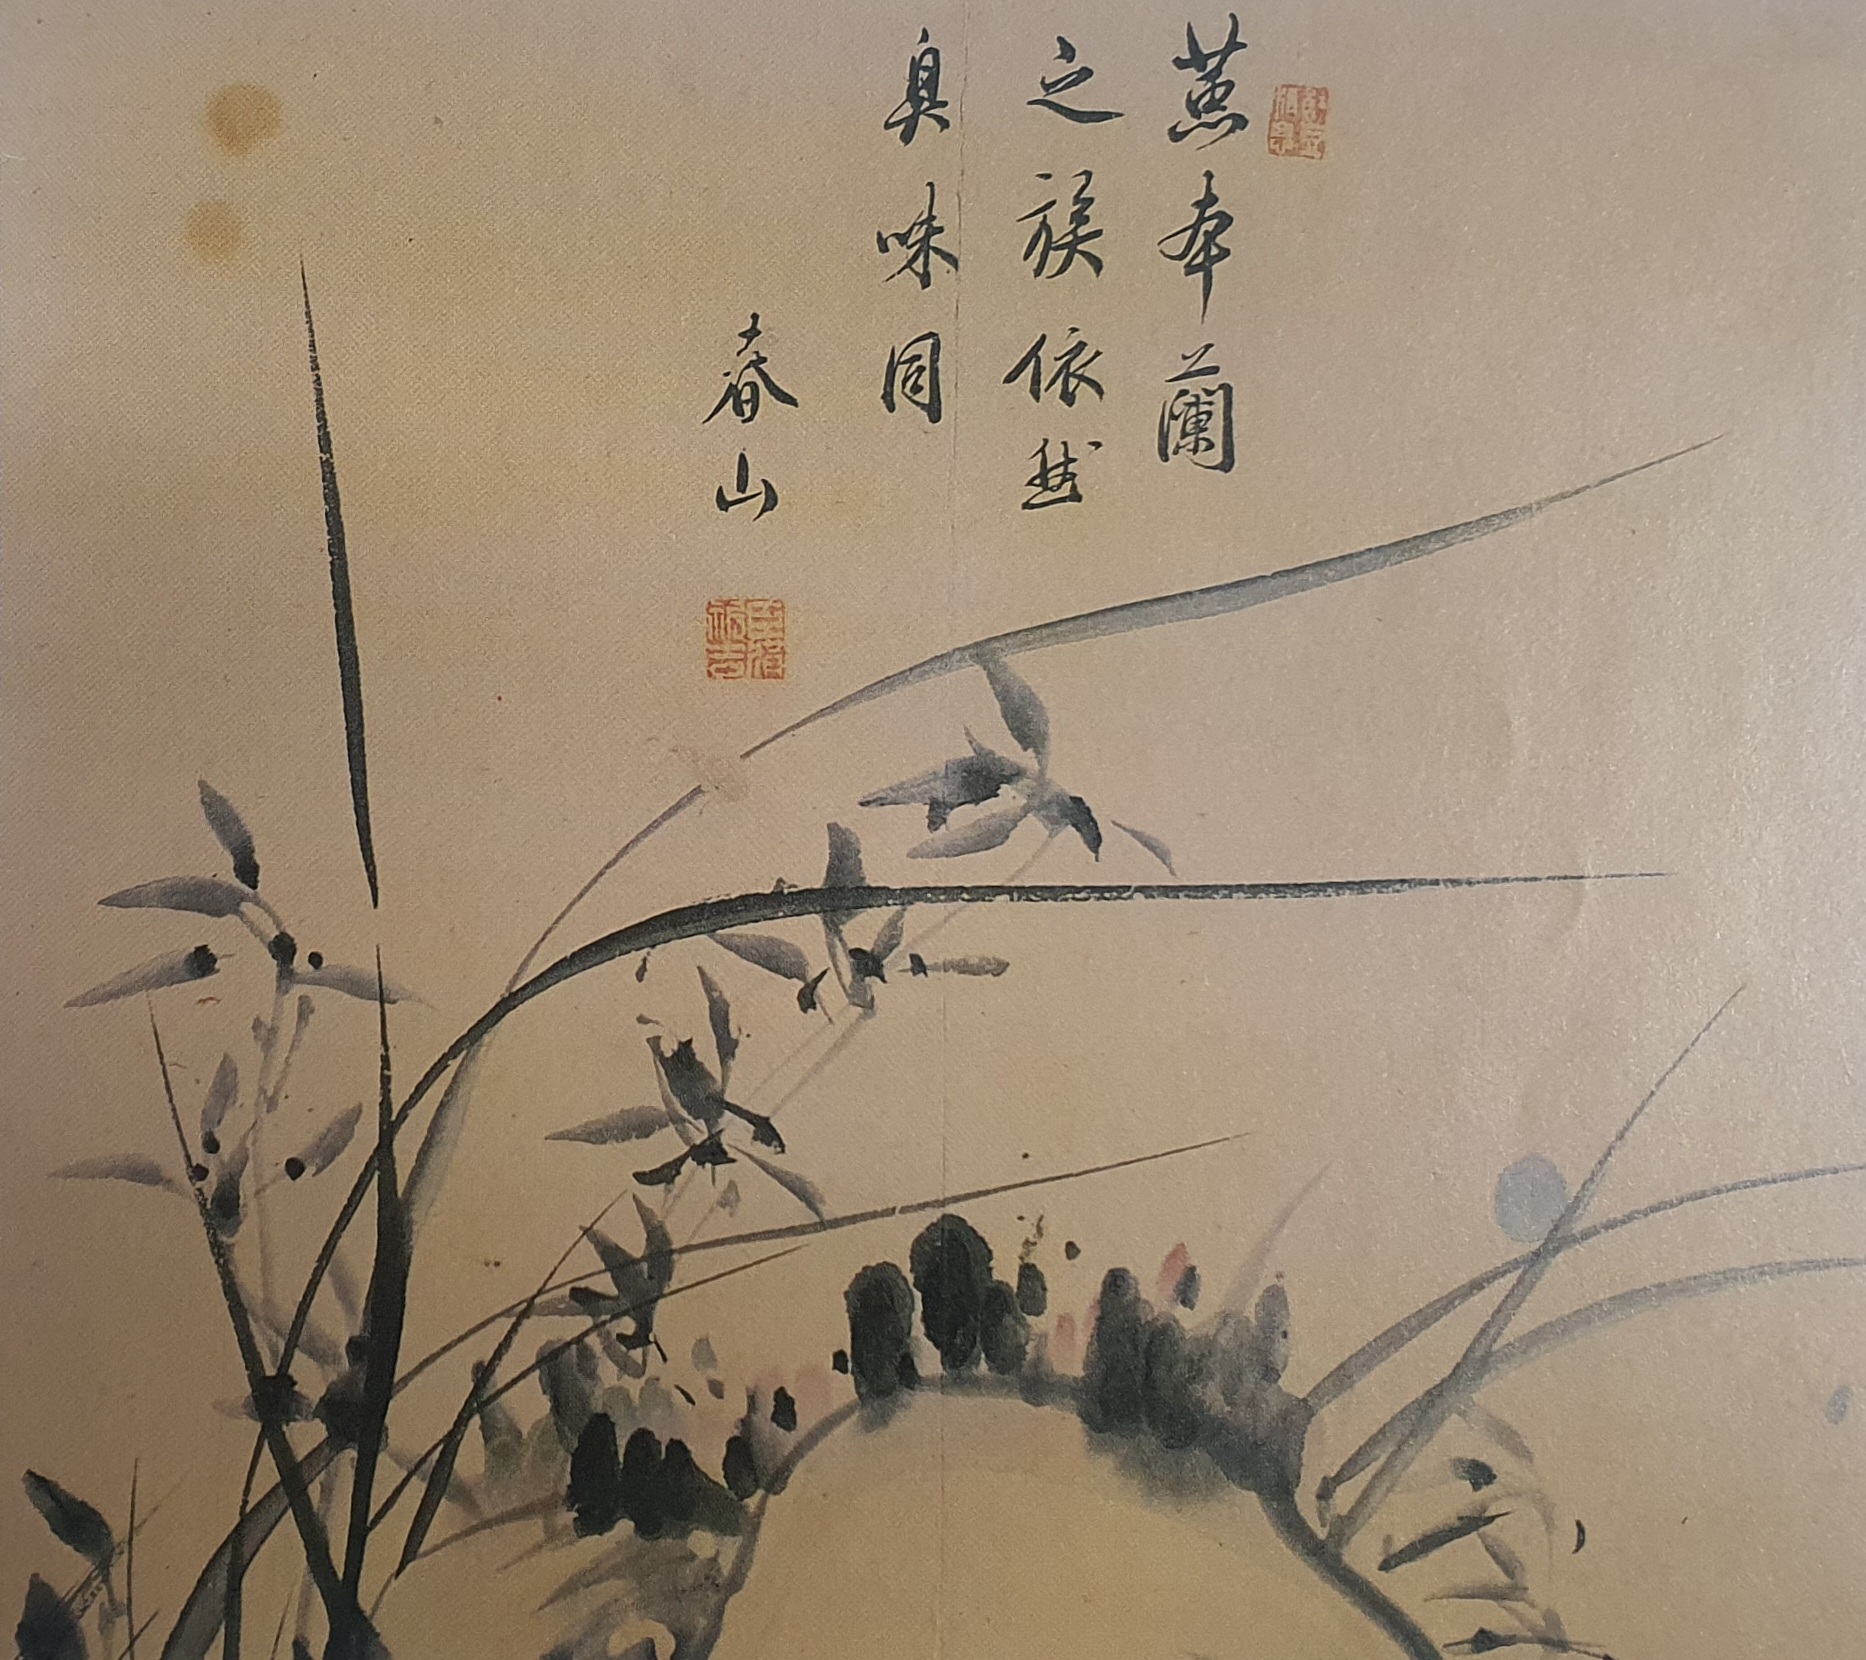 蕙本蘭
之族依然
臭味同
春山